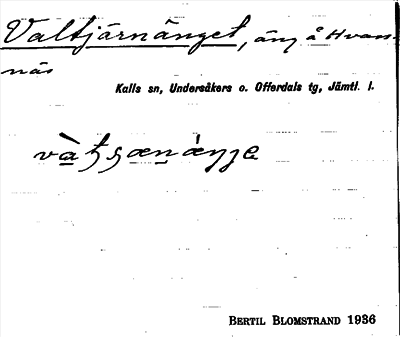 Valtjärnänget, äng å Hvam-
näs
Kalls sn, Undersåkers o. Offerdals tg, Jämtl. l.
BERTIL BLOMSTRAND 1936